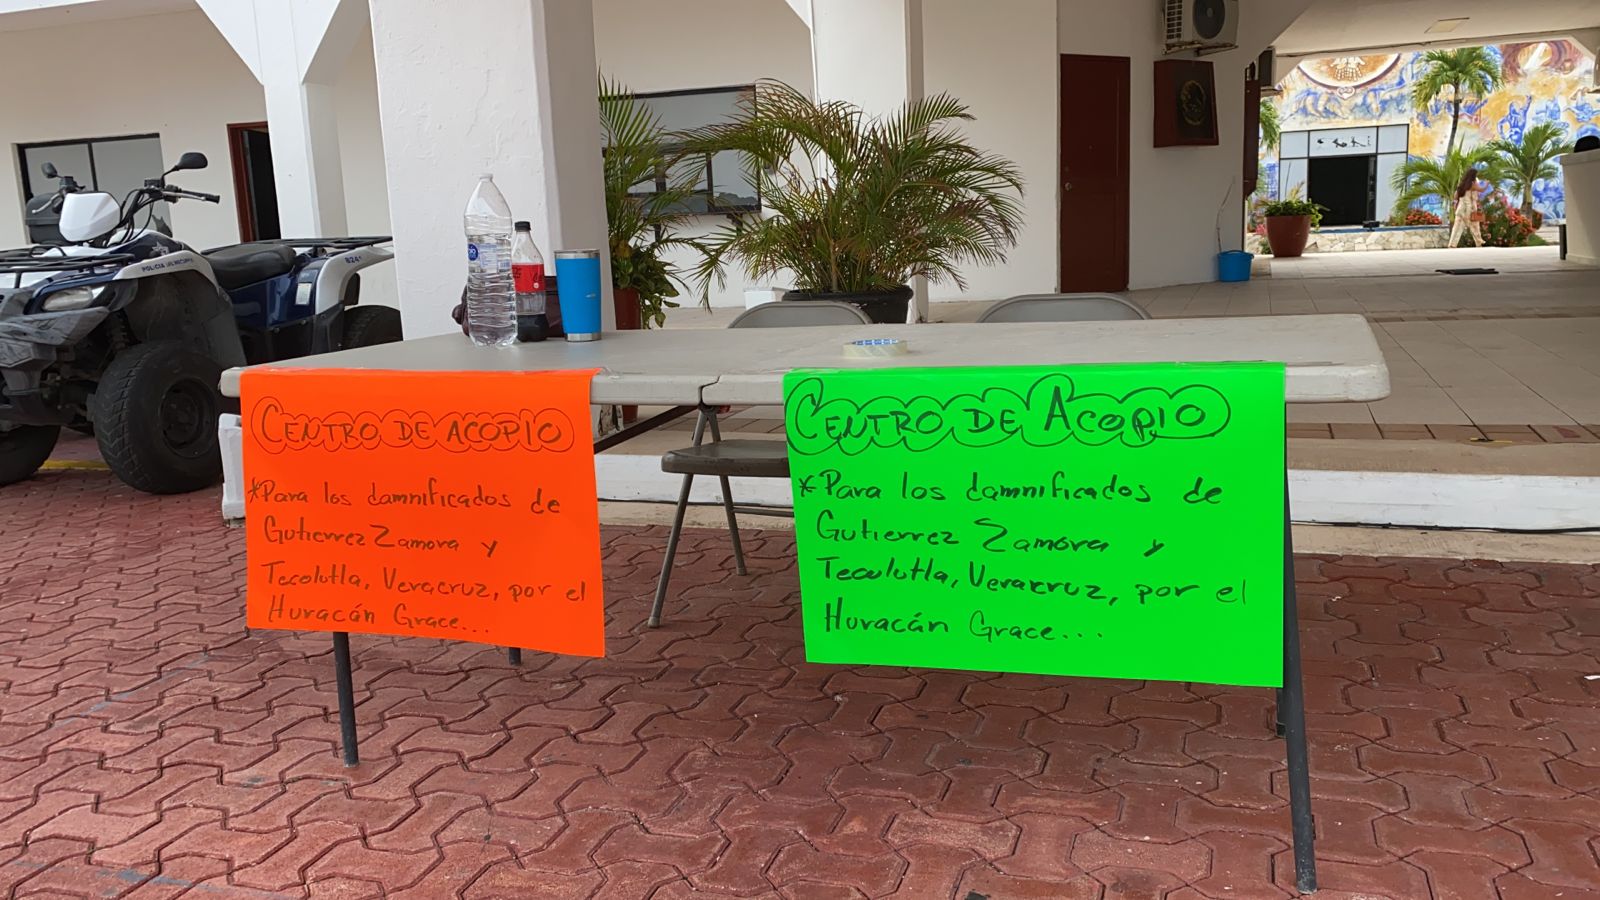 CENTRO DE ACOPIO
*Para los damnificados de
Gutierrez Zamora y
Tecolutla, Veracruz, por el
Huracán Grace...
CENTRO DE ACOPIO
*Para los damnificados de
Gutierrez Zamora y
Tecolutla, Veracruz, por el
Huracán Grace...